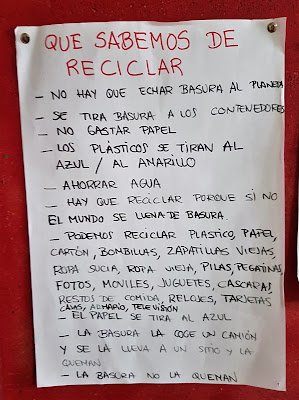 QUE SABEMOS DE
RECICLAR
- NO HAY QUE ECHAR BASURA AL PLANETA
- SE TIRA BASURA A LOS CONTENEDORES
- NO GASTAR PAPEL
- LOS PLÁSTICOS SE TIRAN AL
AZUL / AL AMARILLO
- AHORRAR AGUA
- HAY QUE RECICLAR PORQUE SI NO
EL MUNDO SE LLENA DE BASURA.
- PODEMOS RECICLAR PLASTICO, PAPEL,
CARTÓN, BOMBILLAS, ZAPATILLAS VIEJAS,
ROPA SUCIA, ROPA VIEJA, PILAS, PEGATINAS,
FOTOS, MOVILES, JUGUETES, CASCARAS,
RESTOS DE COMIDA, RELOJES, TARJETAS
CAJAS, ARMARIO, TELEVISIÓN
- EL PAPEL SE TIRA AL AZUL
- LA BASURA LA COGE UN CAMIÓN
Y SE LA LLEVA A UN SITIO Y LA
QUEMAN
- LA BASURA NO LA QUEMAN